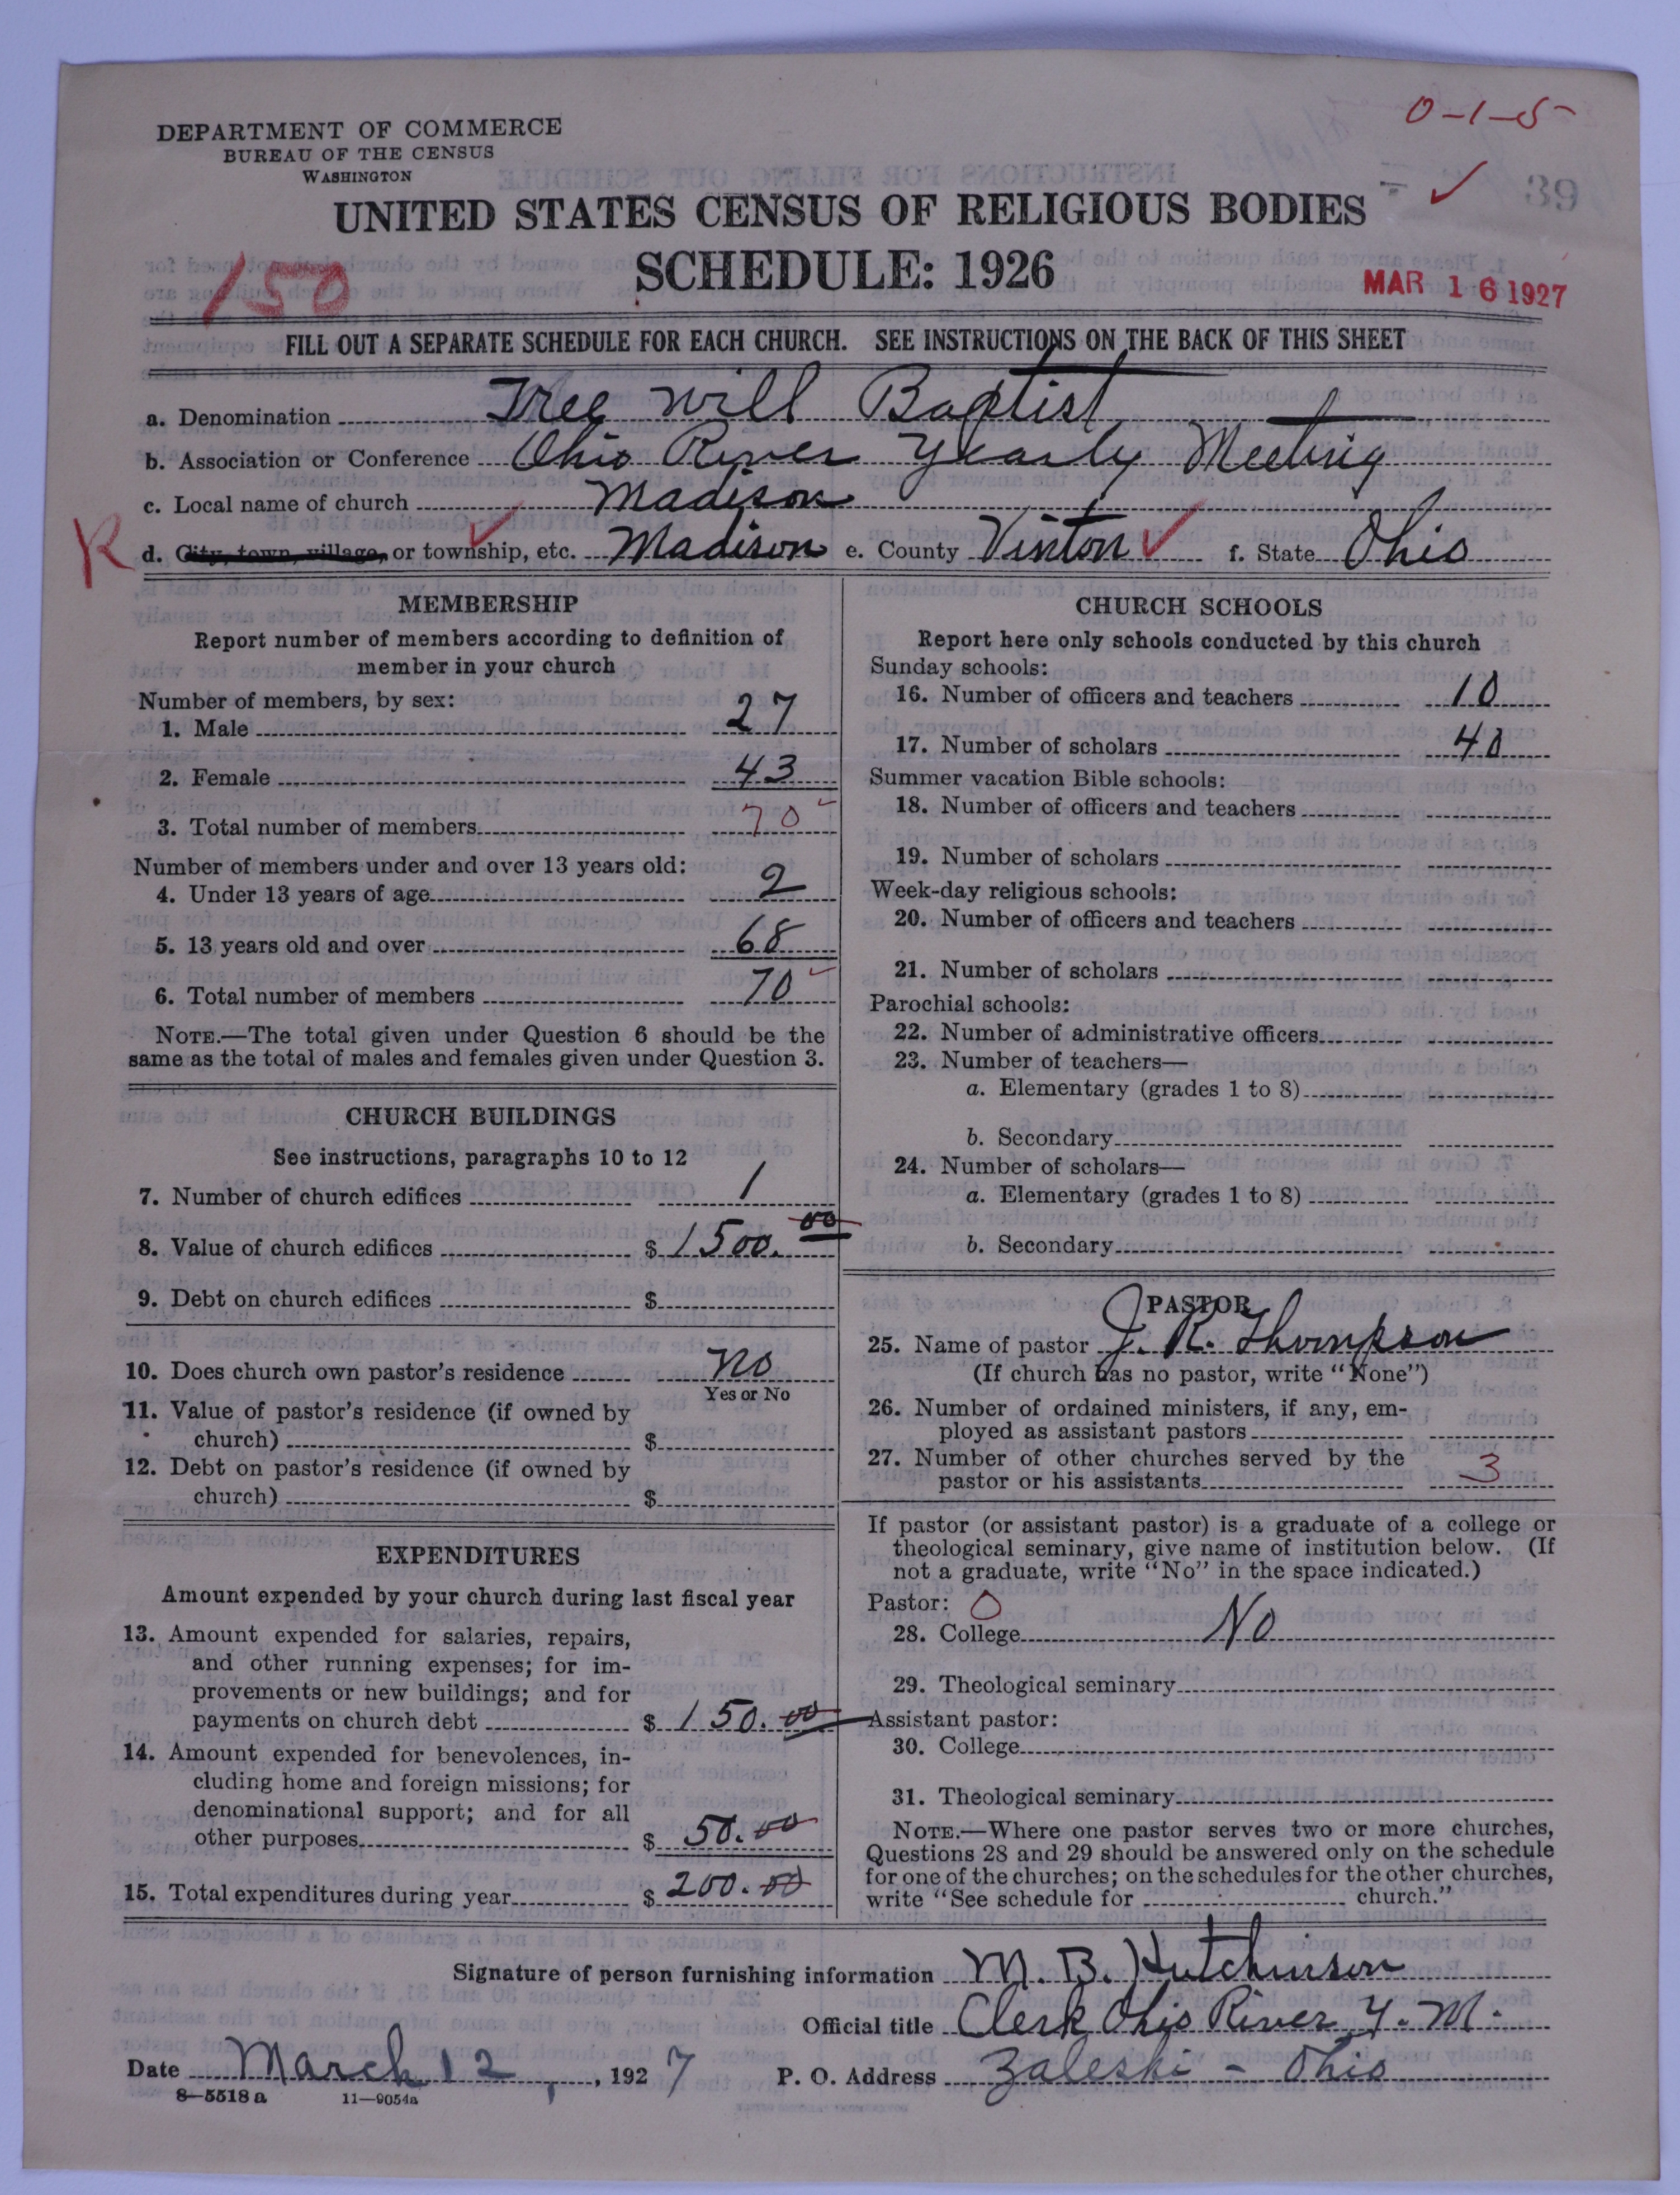 0-1-5
DEPARTMENT OF COMMERCE
BUREAU OF THE CENSUS
WASHINGTON
39
UNITED STATES CENSUS OF RELIGIOUS BODIES
SCHEDULE: 1926
150
MAR 16 1927
FILL OUT A SEPARATE SCHEDULE FOR EACH CHURCH. SEE INSTRUCTIONS ON THE BACK OF THIS SHEET
a. Denomination Free Will Baptist
b. Association or Conference Ohio River Yearly Meeting
c. Local name of church Madison
R d. City, town, village, or township, etc. Madison e. County Vinton f. State Ohio
MEMBERSHIP
Report number of members according to definition of
member in your church
Number of members, by sex:
1. Male 27
2. Female 43
3. Total number of members 70
Number of members under and over 13 years old:
4. Under 13 years of age 2
5. 13 years old and over 68
6. Total number of members 70
NOTE.—The total given under Question 6 should be the
same as the total of males and females given under Question 3.
CHURCH BUILDINGS
See instructions, paragraphs 10 to 12
7. Number of church edifices 1
8. Value of church edifices $ 1500.00
9. Debt on church edifices $
10. Does church own pastor's residence No
Yes or No
11. Value of pastor's residence (if owned by
church) $
12. Debt on pastor's residence (if owned by
church) $
EXPENDITURES
Amount expended by your church during last fiscal year
13. Amount expended for salaries, repairs,
and other running expenses; for im-
provements or new buildings; and for
payments on church debt $ 150.00
14. Amount expended for benevolences, in-
cluding home and foreign missions; for
denominational support; and for all
other purposes $ 50.00
15. Total expenditures during year $ 200.00
CHURCH SCHOOLS
Report here only schools conducted by this church
Sunday schools:
16. Number of officers and teachers 10
17. Number of scholars 40
Summer vacation Bible schools:
18. Number of officers and teachers
19. Number of scholars
Week-day religious schools:
20. Number of officers and teachers
21. Number of scholars
Parochial schools:
22. Number of administrative officers
23. Number of teachers—
a. Elementary (grades 1 to 8)
b. Secondary
24. Number of scholars—
a. Elementary (grades 1 to 8)
b. Secondary
PASTOR
25. Name of pastor J. R. Thompson
(If church has no pastor, write "None")
26. Number of ordained ministers, if any, em-
ployed as assistant pastors
27. Number of other churches served by the
pastor or his assistants 3
If pastor (or assistant pastor) is a graduate of a college or
theological seminary, give name of institution below. (If
not a graduate, write "No" in the space indicated.)
Pastor: 0
28. College No
29. Theological seminary
Assistant pastor:
30. College
31. Theological seminary
NOTE.—Where one pastor serves two or more churches,
Questions 28 and 29 should be answered only on the schedule
for one of the churches; on the schedules for the other churches,
write "See schedule for church."
Signature of person furnishing information M. B. Hutchinson
Official title Clerk Ohio River Y. M.
Date March 12, 1927 P. O. Address Zaleski - Ohio
8—5518 a 11—9054a